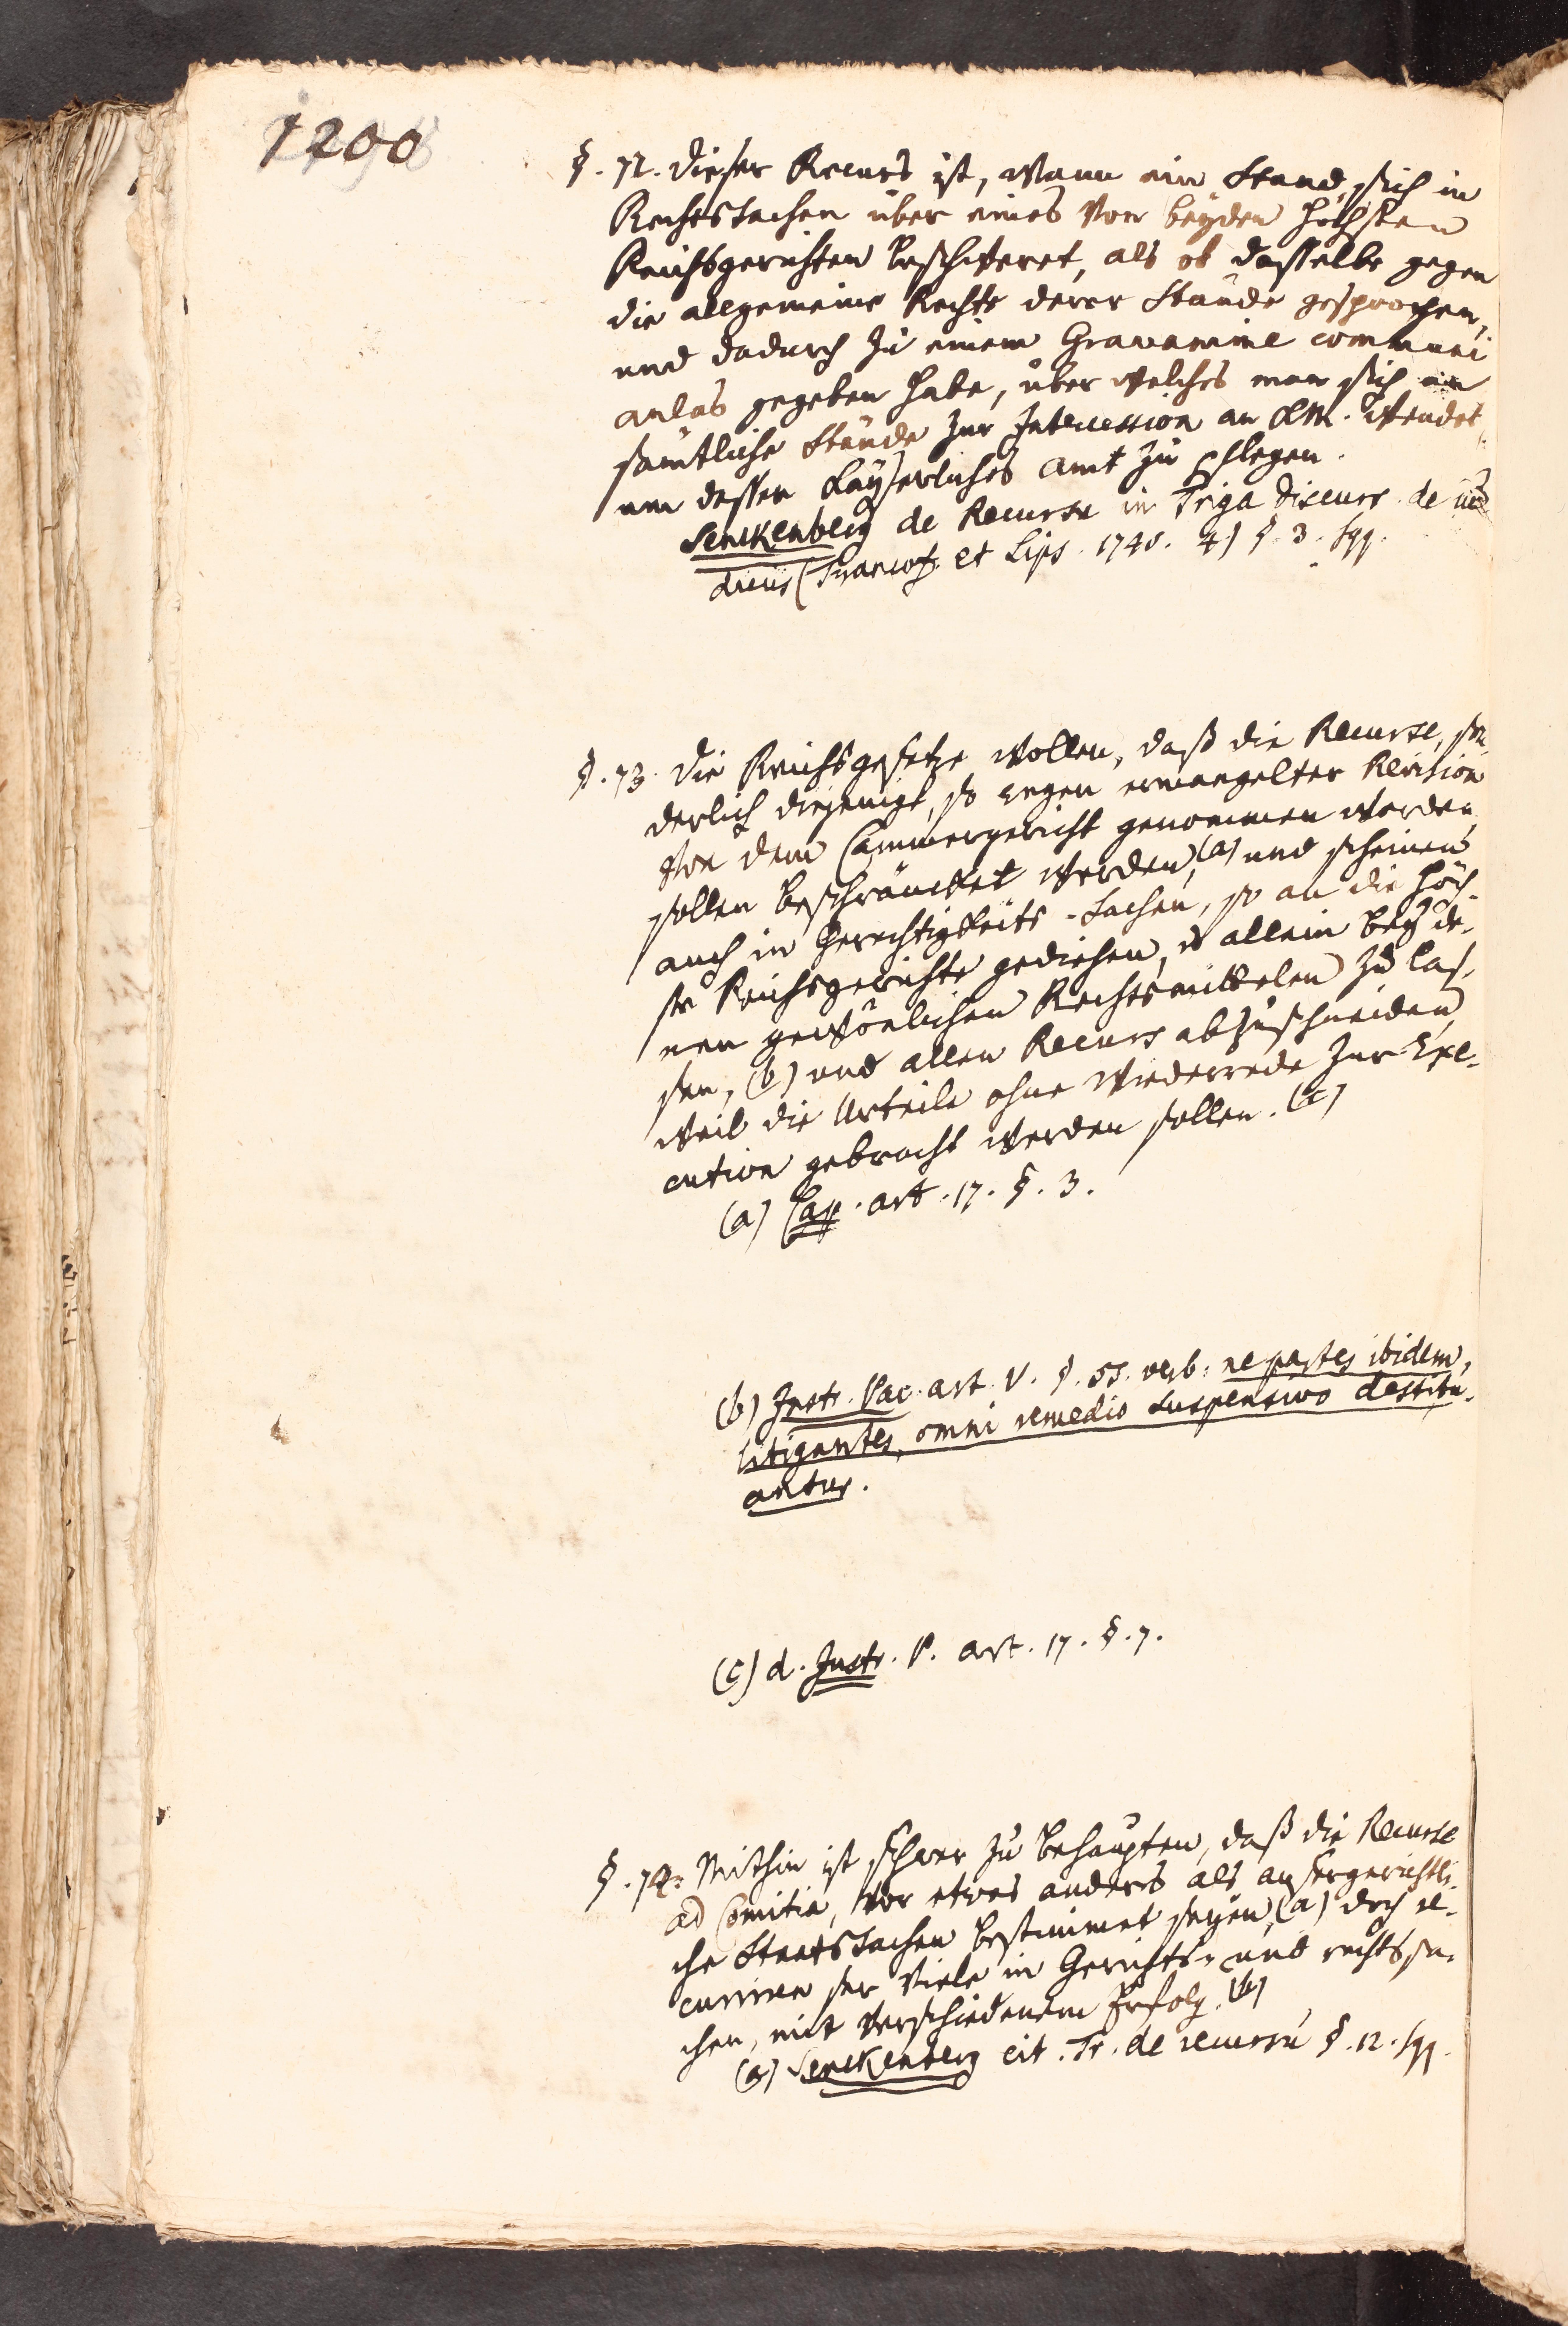 1200
§. 72. Dieser Recurs ist, wann ein Stand sich in
Rechtssachen über eines von beyden höchsten
Reichsgerichten beschweret, als ob dasselbe gegen
die allgemeine Rechte derer Stände gesprochen,
und dadurch zu einem Gravamine communi
anlas gegeben habe, über welches man sich an
sämtliche Stände zur Intercession an K.M. wendet
um dessen Kayserliches Amt zu pflegen.
Senckenberg de Recursu in Triga Discurs. de
(Francof. et Lips. 1740. 4) §. 3. sqq.
§. 73. Die Reichsgesetze wollen, daß die Recurse, son-
derlich diejenige, so wegen ermangelter Revision
von dem Cammergericht genommen werden,
sollen beschräncket werden, (a) und scheinen
auch in Gerechtigkeits-Sachen, so an die höch-
ste Reichsgerichte gediehen, es allein bey de-
nen gewönlichen Rechtsmittelen zu las-
sen, (b) und allen Recurs abzuschneiden,
weil die Urteile ohne Wiederrede zur Exe-
cution gebracht werden sollen. (c)
(a) Cap. art. 17. §. 3.
(b) Instr. Pac. art. V. §. 55. verb: ne partes ibidem,
litigantes, omni remedio suspensivo destitu-
antur.
(c) d. Instr. P. art. 17. §. 7.
§. 74. Mithin ist schwer zu behaupten, daß die Recurse
ad Comitia, vor etwas anders als aussergerichtli-
che Staatssachen bestimmet seyen, (a) doch re-
curriren ser viele in Gerichts- und rechtssa-
chen, mit verschiedenem Erfolg. (b)
(a) Senckenberg cit. Tr. de recursu §. 12. sqq.